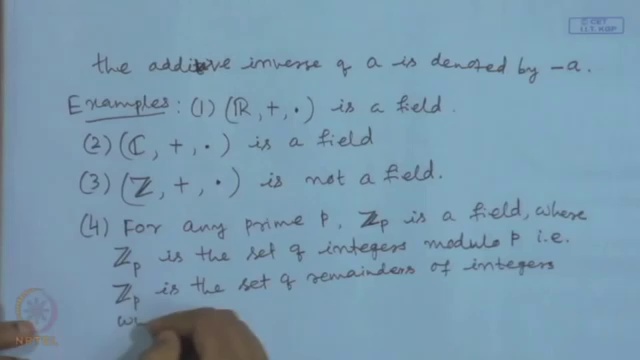 © CET
I.I.T. KGP
the additive inverse of a is denoted by -a.
Examples: (1) (ℝ, +, ·) is a field.
(2) (ℂ, +, ·) is a field
(3) (ℤ, +, ·) is not a field.
(4) For any prime p, ℤp is a field, where
ℤp is the set of integers modulo p i.e.
ℤp is the set of remainders of integers
NPTEL